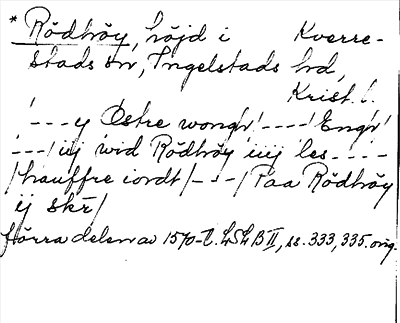 * Rödhöy, höjd i Kverre-
stads sn, Ingelstads hd,
Krist. l.
'---y Östre wongh' ----' Engh'
'---' iij wid Rödhöy iiij les ----
/hauffre iordt/---/ Paa Rödhöy
ij skr/
förra delen av 1570-t. LSLB II, ss. 333, 335. orig.